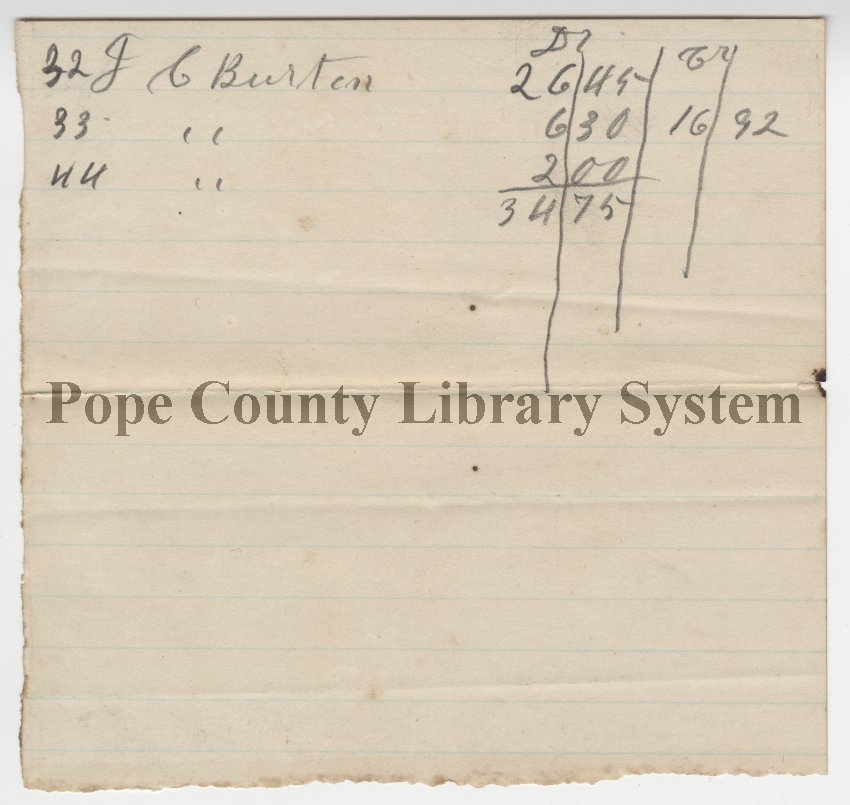 Dr Cr
32 J C Burton 26 45
33 " 6 30 16 92
44 " 2 00
34 75
Pope County Library System